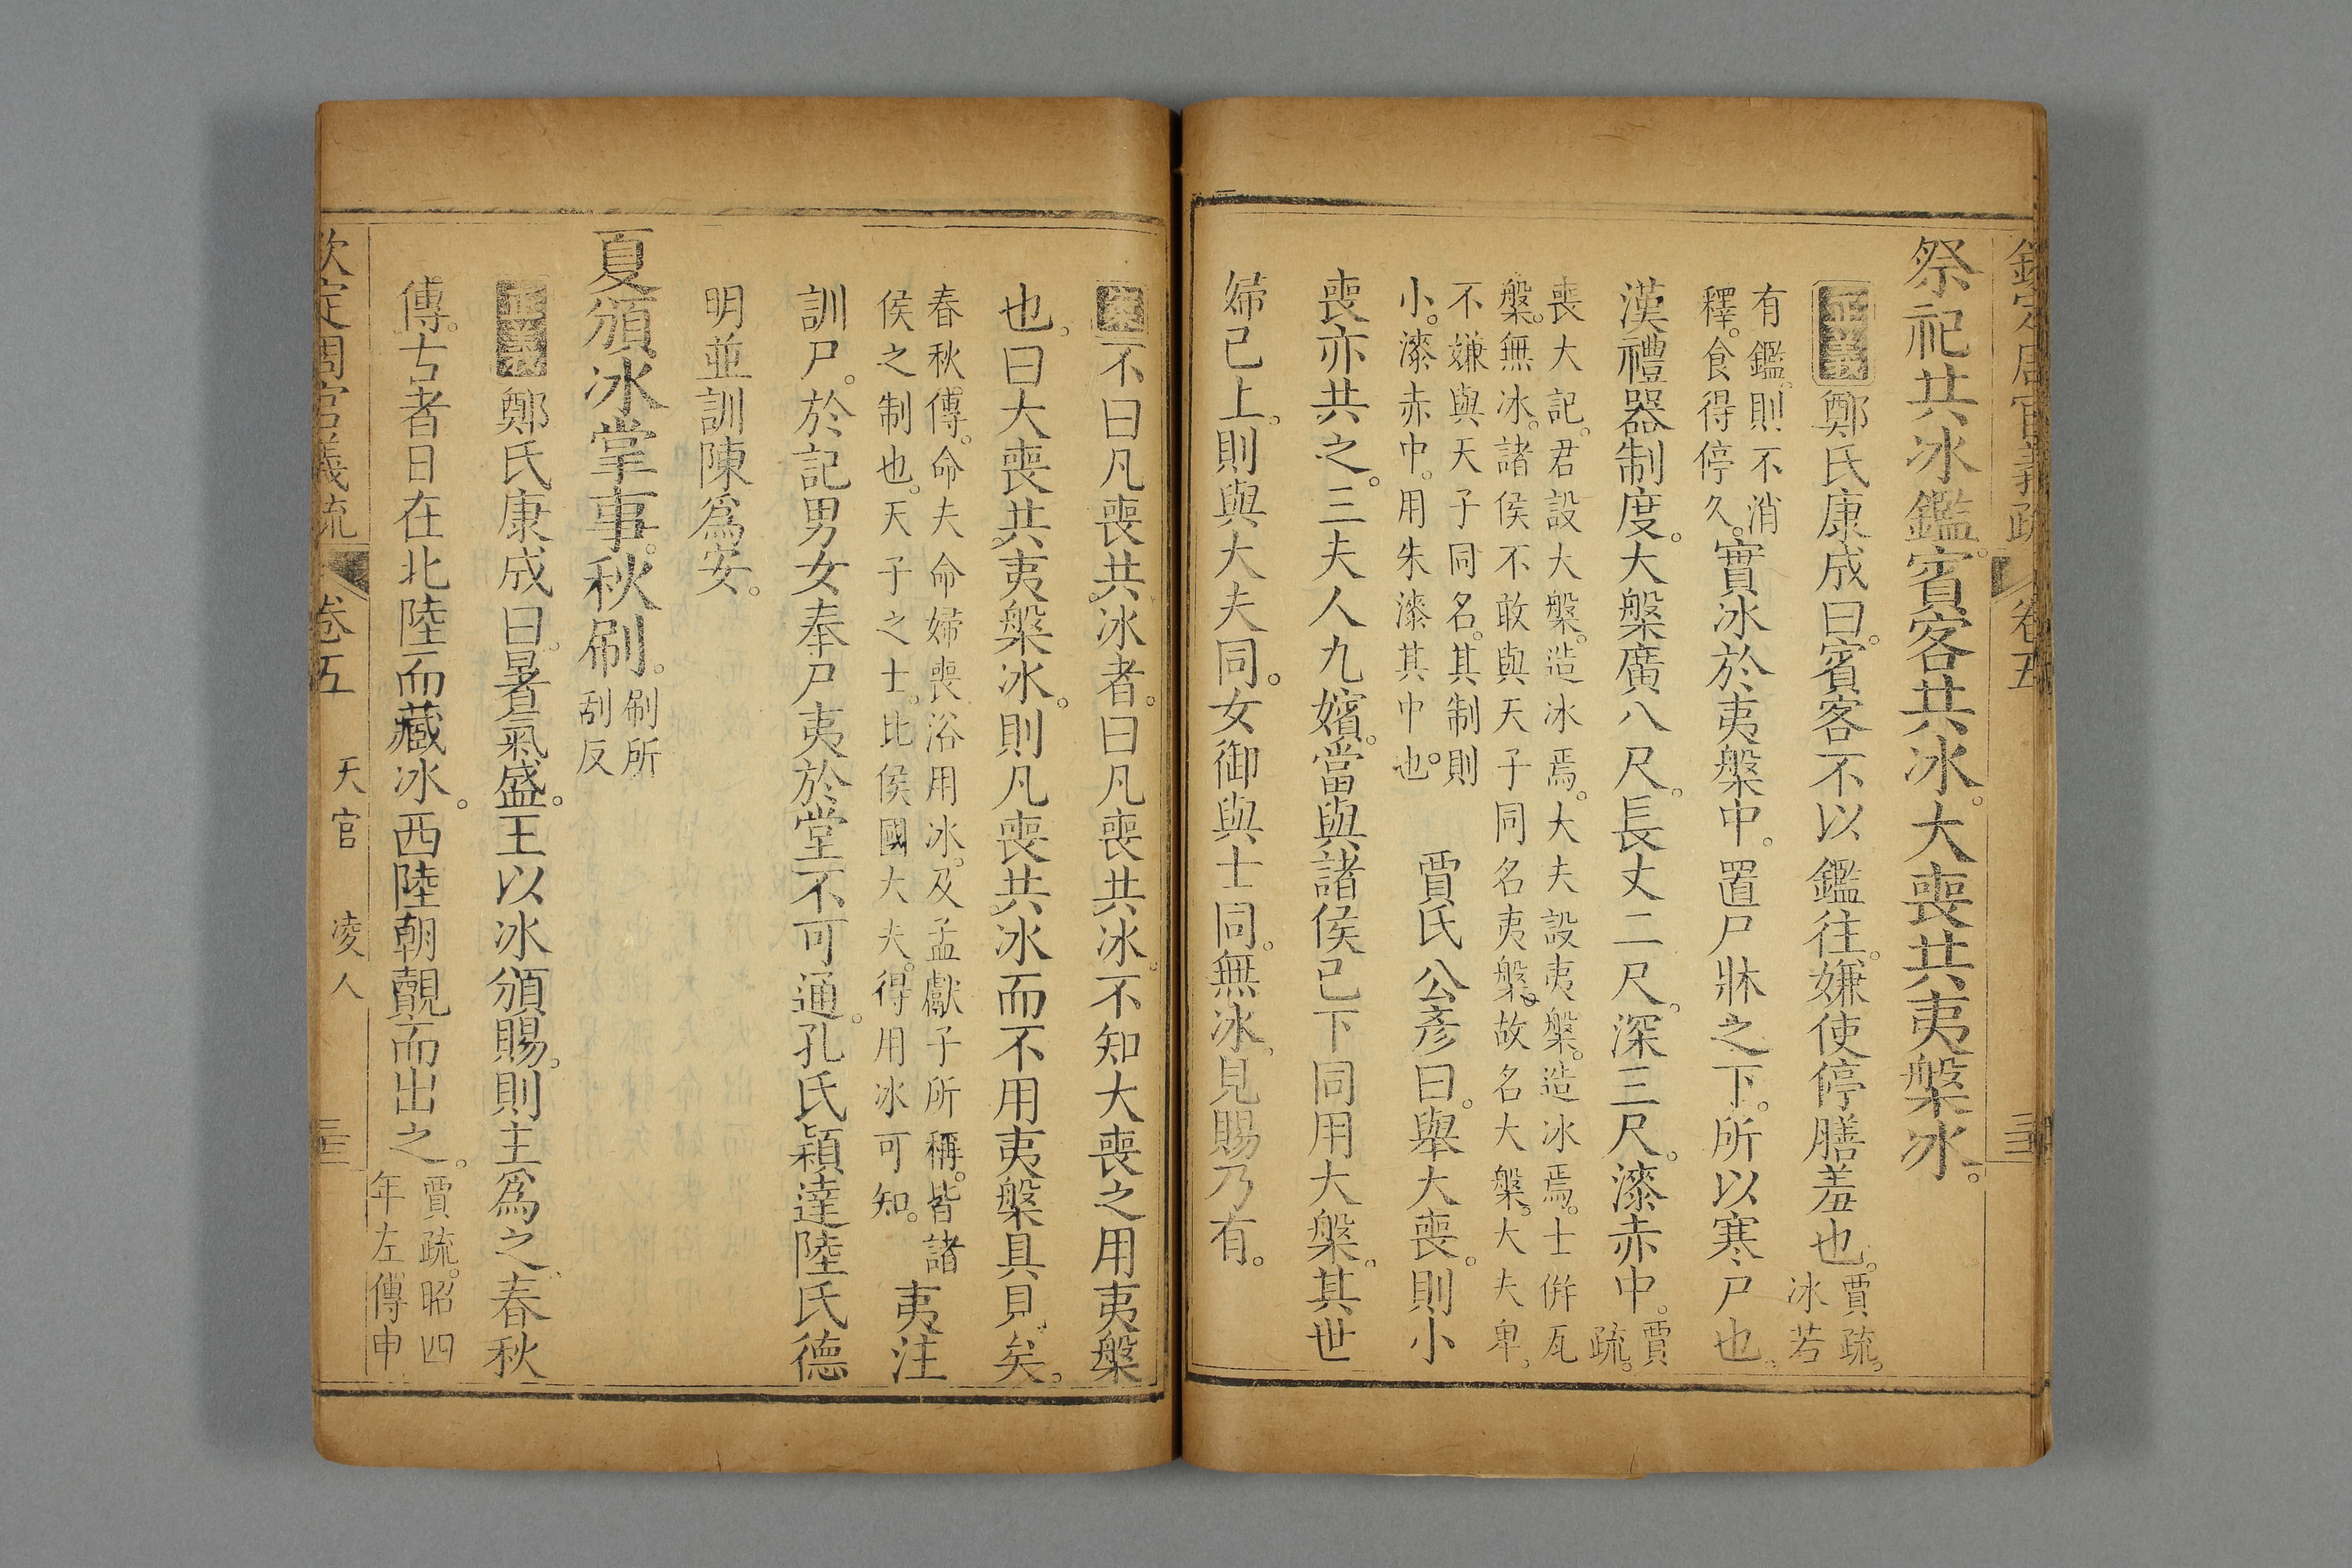 欽定周官義疏 卷五
祭祀共冰鑑。賓客共冰。大喪共夷槃冰。
正義 鄭氏康成曰。賓客不以鑑往。嫌使停膳羞也。賈疏。
冰若
有鑑。則不消
釋。食得停久。實冰於夷槃中。置尸牀之下。所以寒尸也。
漢禮器制度。大槃廣八尺。長丈二尺。深三尺。漆赤中。賈
疏。
喪大記。君設大槃。造冰焉。大夫設夷槃。造冰焉。士併瓦
槃。無冰。諸侯不敢與天子同名夷槃。故名大槃。大夫卑、
不嫌與天子同名。其制則
小。漆赤中。用朱漆其中也。賈氏公彥曰。舉大喪。則小
喪亦共之。三夫人九嬪。當與諸侯已下同用大槃。其世
婦已上。則與大夫同。女御與士同。無冰、見賜乃有。
案 不曰凡喪共冰者。曰凡喪共冰。不知大喪之用夷槃
也、曰大喪共夷槃冰。則凡喪共冰而不用夷槃具見矣。
春秋傳。命夫命婦喪浴用冰。及孟獻子所稱。皆諸
侯之制也。天子之士。比侯國大夫。得用冰可知。夷注
訓尸。於記男女奉尸夷於堂不可通。孔氏穎達陸氏德
明並訓陳爲安。
夏頒冰掌事。秋刷。刷所
刮反
正義 鄭氏康成曰。暑氣盛。王以冰頒賜。則主爲之、春秋
傳。古者日在北陸而藏冰。西陸朝覿而出之。賈疏。昭四
年左傳申
欽定周官義疏 卷五 天官 凌人